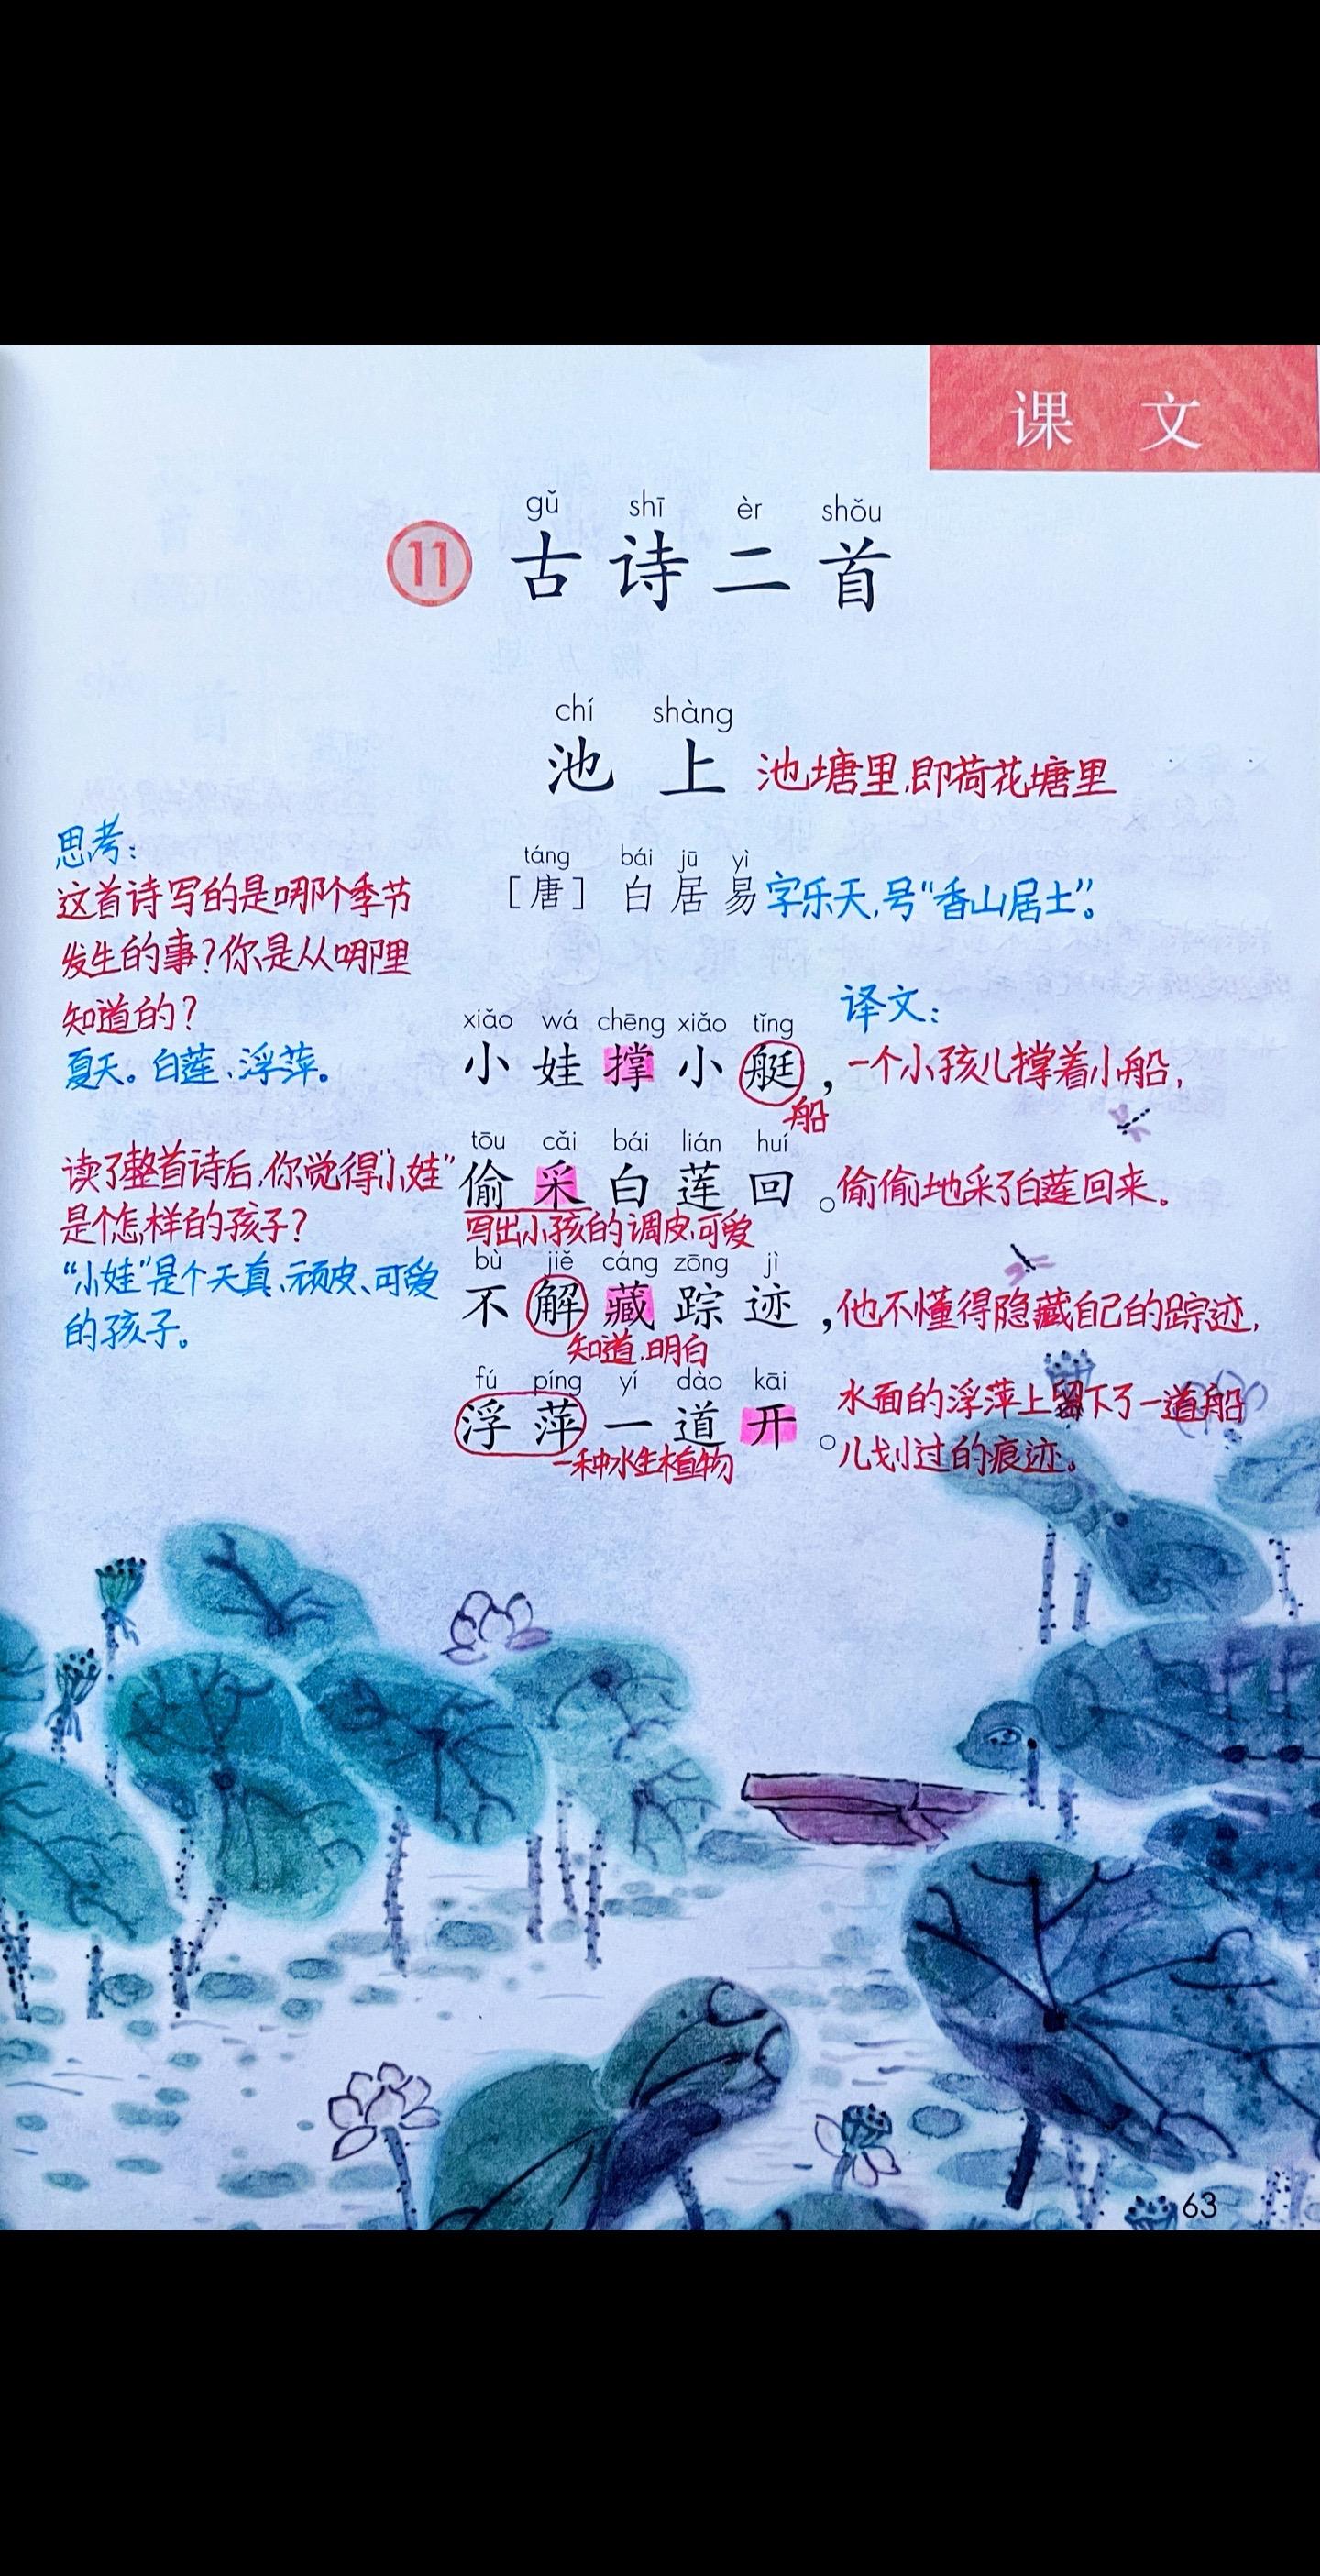 课 文
gǔ shī èr shǒu
11 古诗二首
chí shàng
池 上 池塘里,即荷花塘里
思考:
táng bái jū yì
[唐] 白居易 字乐天,号“香山居士”。
这首诗写的是哪个季节
发生的事?你是从哪里
知道的?
夏天。白莲、浮萍。
译文:
xiǎo wá chēng xiǎo tǐng
小娃撑小艇, 一个小孩儿撑着小船,
船
读了整首诗后,你觉得“小娃”
是个怎样的孩子?
“小娃”是个天真、顽皮、可爱
的孩子。
tōu cǎi bái lián huí
偷采白莲回。 偷偷地采了白莲回来。
写出小孩的调皮,可爱
bù jiě cáng zōng jì
不解藏踪迹, 他不懂得隐藏自己的踪迹,
知道,明白
fú píng yí dào kāi
浮萍一道开。 水面的浮萍上留下了一道船
儿划过的痕迹。
一种水生植物
63